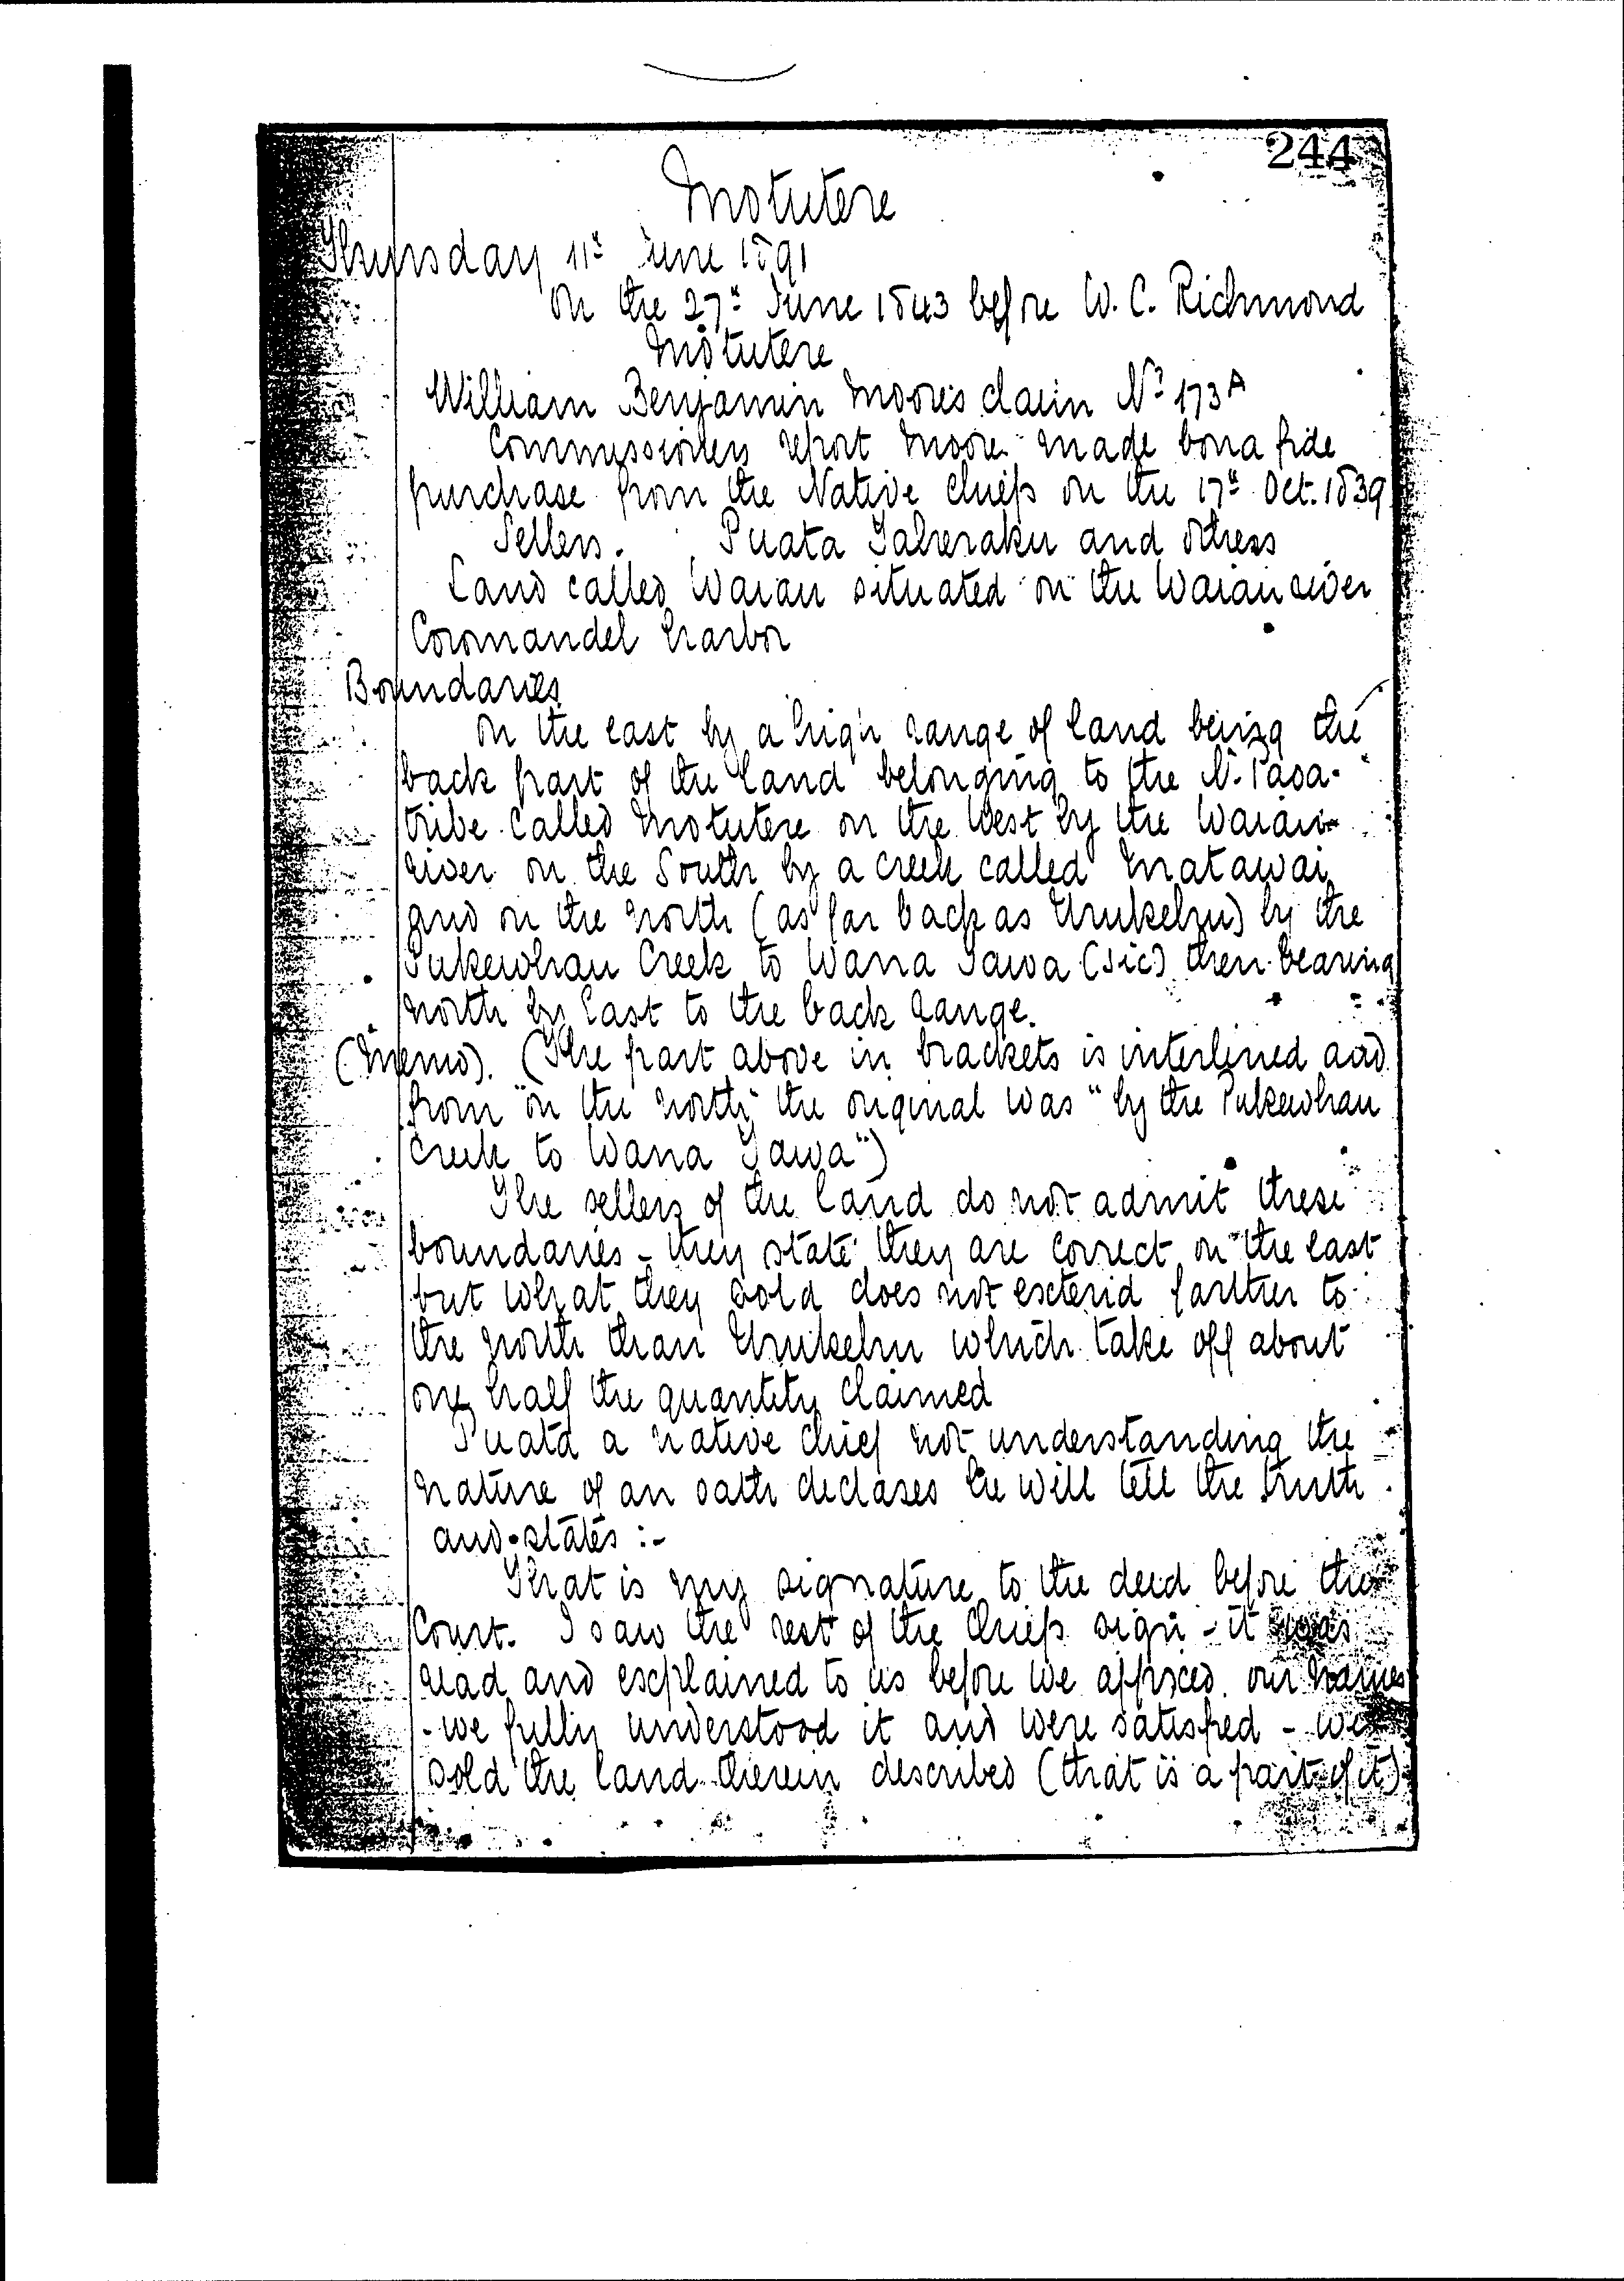 244
Motutere
Thursday 11th June 1891
On the 27th June 1843 before W. C. Richmond
Motutere
William Benjamin Moore's claim No 173A
Commissioners report Moore made bona fide
purchase from the Native Chiefs on the 17th Oct. 1839
Sellers. Puata Taheraku and others
Land called Waiau situated on the Waiau river
Coromandel harbor
Boundaries
On the east by a high range of land being the
back part of the land belonging to the N. Paoa
tribe called Motutere on the West by the Waiau
river on the South by a creek called Matawai
and on the north (as far back as Urukehu) by the
Pukewhau Creek to Wana Tawa (sic) then bearing
north by East to the back range.
(Memo). (The part above in brackets is interlined and
from "on the north" the original was "by the Pukewhau
Creek to Wana Tawa")
The sellers of the land do not admit these
boundaries - they state they are correct on the east
but what they sold does not extend farther to
the north than Urukehu which take off about
one half the quantity claimed
Puata a native chief not understanding the
nature of an oath declares he will tell the truth
and states :-
That is my signature to the deed before the
Court. I saw the rest of the chiefs sign - it was
read and explained to us before we affixed our names
- we fully understood it and were satisfied - we
sold the land therein described (that is a part of it)